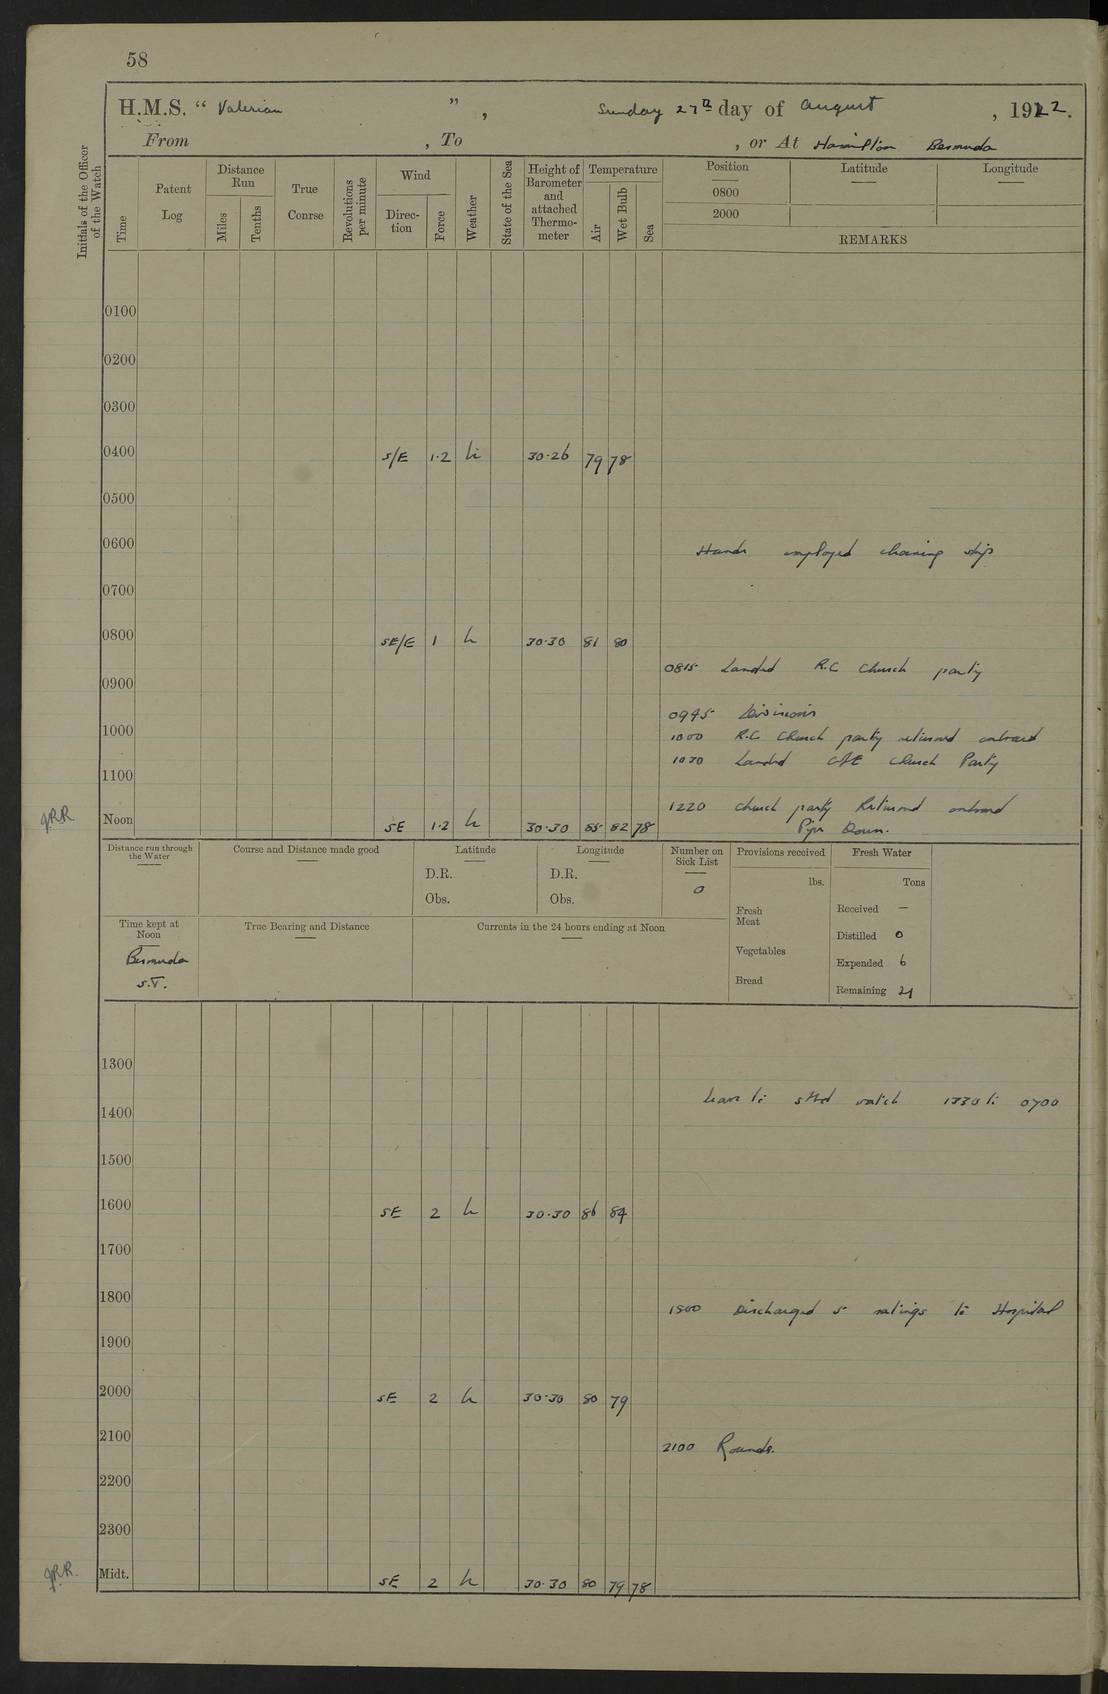 58
H.M.S. “ Valerian ”, Sunday 27th day of August, 1922.
From , To , or At Hamilton Bermuda
Initials of the Officer of the Watch
Time
Patent Log
Distance Run
Miles
Tenths
True Course
Revolutions per minute
Wind
Direction
Force
Weather
State of the Sea
Height of Barometer and attached Thermometer
Temperature
Air
Wet Bulb
Sea
Position Latitude Longitude
0800
2000
REMARKS
0100
0200
0300
0400 S/E 1·2 30·26 79 78
0500
0600 Hands employed cleaning ship
0700
0800 SE/E 1 30·30 81 80
0815 Landed R.C Church party
0900
0945 Divisions
1000 1000 R.C. Church party returned onboard
1030 Landed C of E Church Party
1100
1220 Church party Returned onboard
Noon SE 1·2 30·30 85 82 78 Pipe Down.
J.R.R
Distance run through the Water
Course and Distance made good
Latitude
D.R.
Obs.
Longitude
D.R.
Obs.
Number on Sick List
0
Provisions received
lbs.
Fresh Meat
Vegetables
Bread
Fresh Water
Tons
Received —
Distilled 0
Expended 6
Remaining 21
Time kept at Noon
Bermuda
S.T.
True Bearing and Distance
Currents in the 24 hours ending at Noon
1300
Leave to stbd watch 1330 to 0700
1400
1500
1600 SE 2 30·30 86 84
1700
1800 1800 Discharged 5 ratings to Hospital
1900
2000 SE 2 30·30 80 79
2100 2100 Rounds.
2200
2300
Midt. SE 2 30·30 80 79 78
J.R.R.